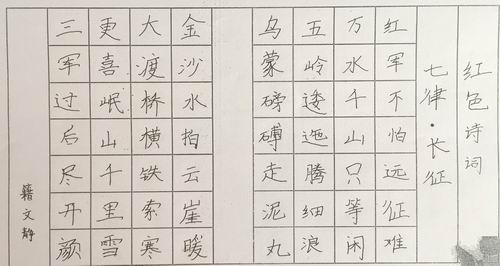 红色诗词
七律·长征
红军不怕远征难
万水千山只等闲
五岭逶迤腾细浪
乌蒙磅礴走泥丸
金沙水拍云崖暖
大渡桥横铁索寒
更喜岷山千里雪
三军过后尽开颜
籍文静